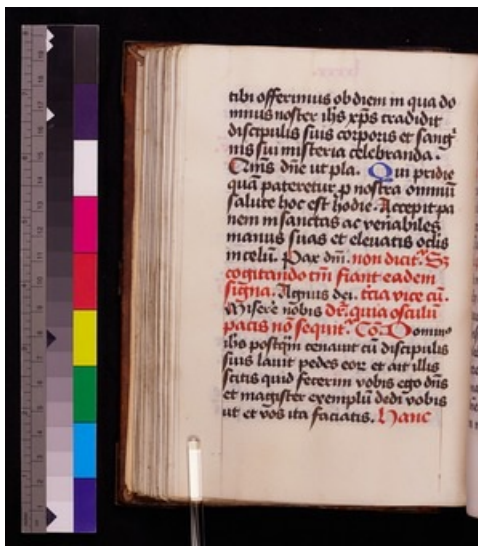 tibi offerimus ob diem in qua do
minus noster ihs xps tradidit
discipulis suis corporis et sang
nis sui misteria celebranda.
dne ut pla. Qui pridie
qua pateretur p nostra omniu
salute hoc est hodie. Accepit pa
nem in sanctas ac venabiles
manus suas et eleuatis oclis
in celu. Pax dni. non dicit. Sz
cogitando tm fiant eadem
signa. Agnus dei. tcia vice cu.
Misere nobis dr. quia osculu
pacis no sequit. Co. Domin
ihs postqm cenauit cu discipulis
suis lauit pedes eor et ait illis
scitis quid fecerim vobis ego dns
et magister exemplu dedi vobis
ut et vos ita faciatis. Hanc